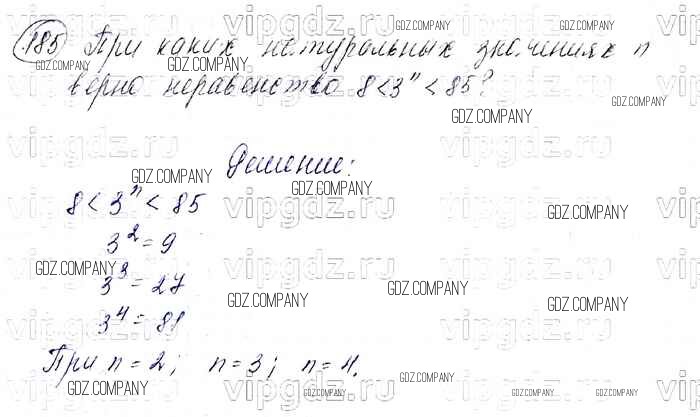 185 При каких натуральных значениях n
верно неравенство 8 < 3ⁿ < 85?
Решение:
8 < 3ⁿ < 85
3² = 9
3³ = 27
3⁴ = 81
При n = 2; n = 3; n = 4.
vipgdz.ru
GDZ.COMPANY